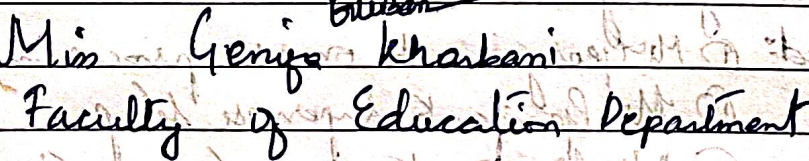 Miss Geniga Kharbani
Faculty of Education Department